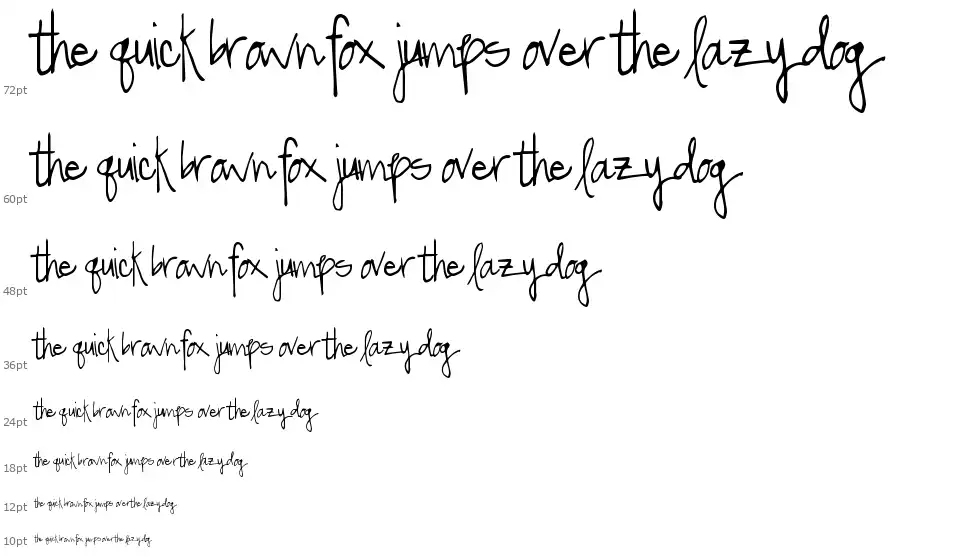 the quick brown fox jumps over the lazy dog
72pt
the quick brown fox jumps over the lazy dog
60pt
the quick brown fox jumps over the lazy dog
48pt
the quick brown fox jumps over the lazy dog
36pt
the quick brown fox jumps over the lazy dog
24pt
the quick brown fox jumps over the lazy dog
18pt
the quick brown fox jumps over the lazy dog
12pt
the quick brown fox jumps over the lazy dog
10pt